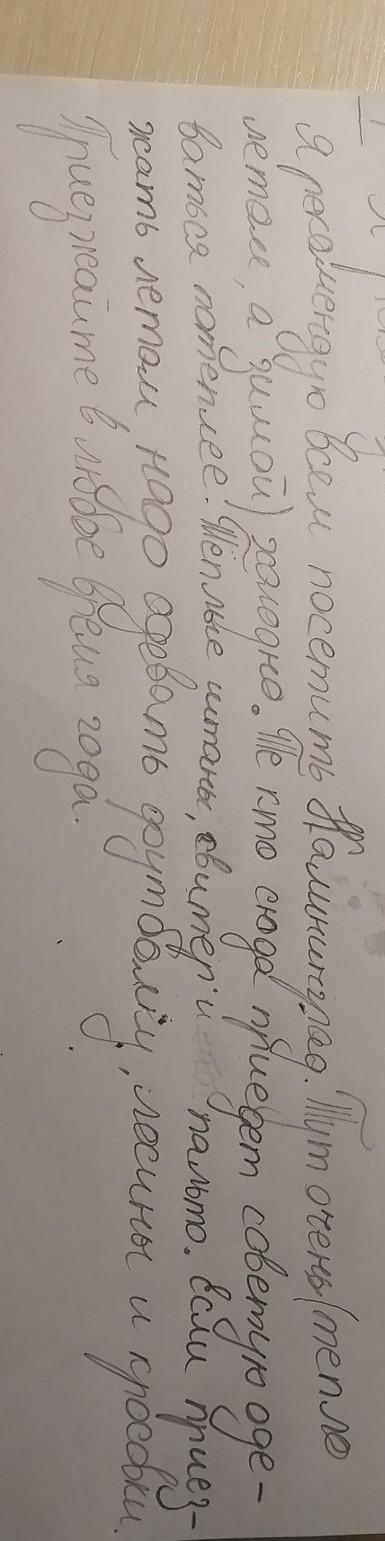 Я рекомендую всем посетить Калининград. Тут очень (тепло
летом, а зимой) холодно. Те кто сюда приедет советую оде-
ваться потеплее. Тёплые штаны, свитер и пальто. Если приез-
жать летом надо одевать футболку, лосины и кросовки.
Приезжайте в любое время года.